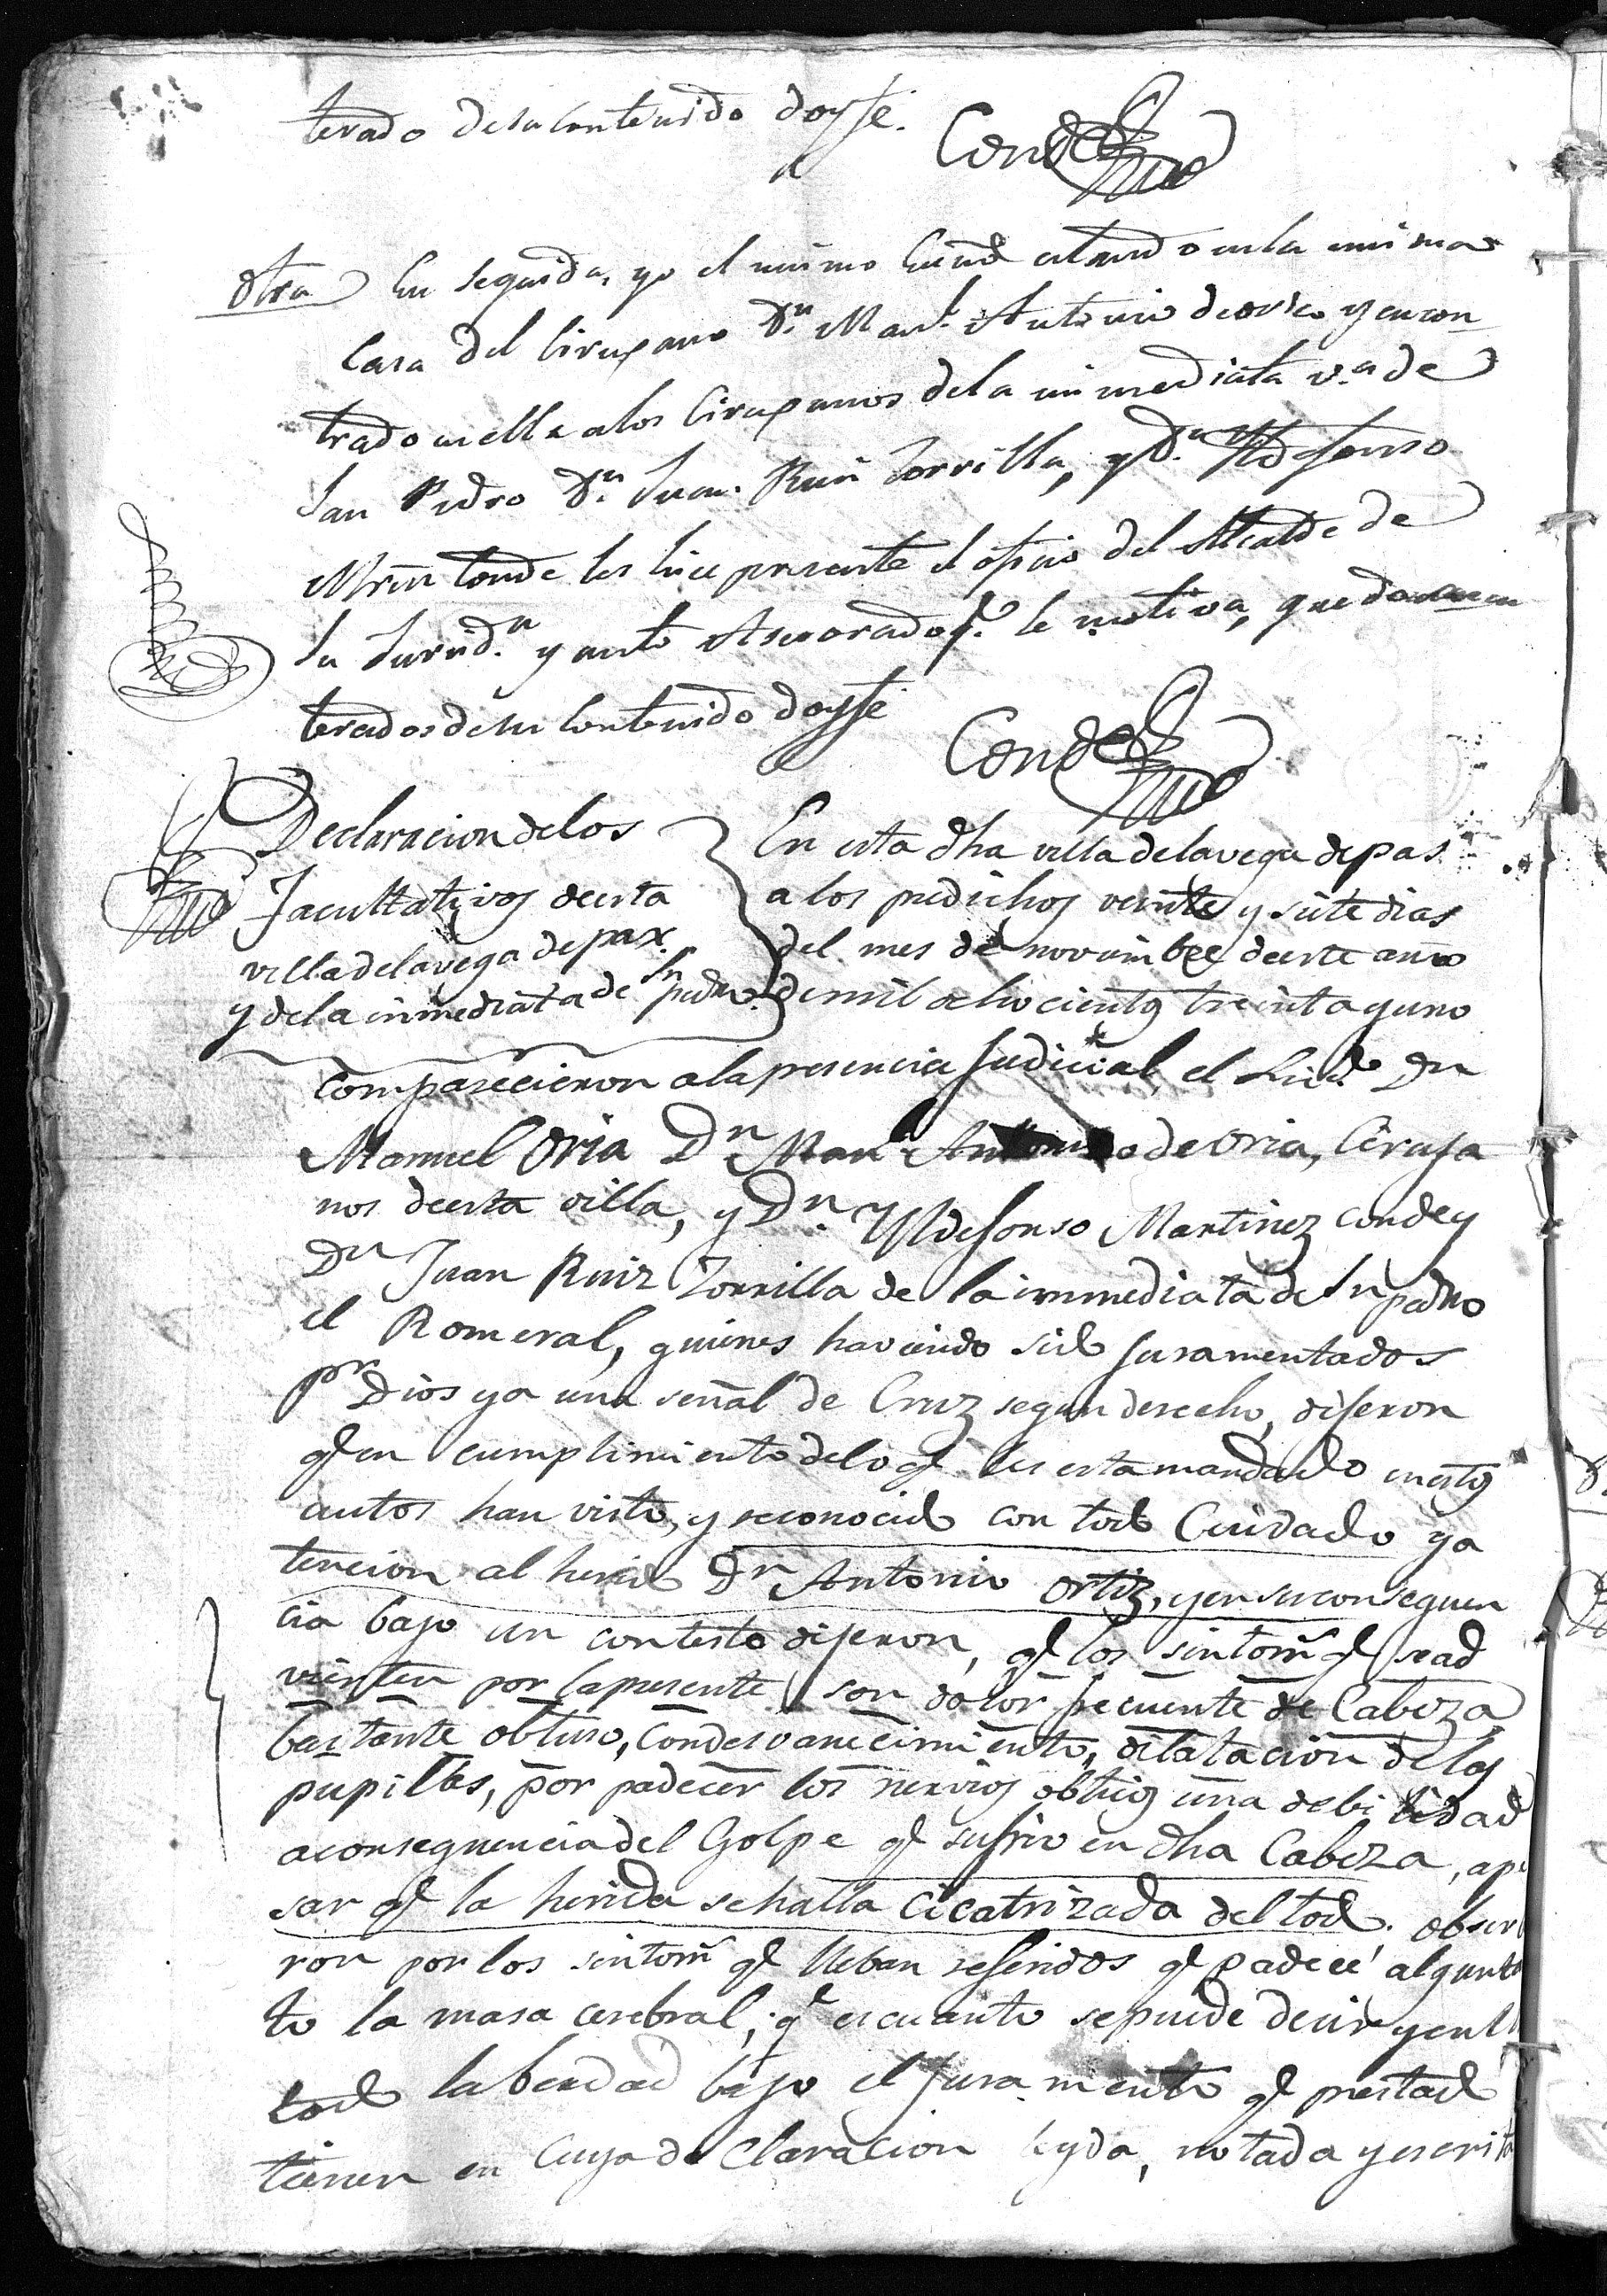 terado desu contenido doyfe.
Conde
Otra En seguida, yo el mismo Essnō estando en la misma
Casa del Cirujano Dn. Manl. Antonio de oria y encon
trado en ella a los Cirujanos dela inmediata va. de
San Pedro Dn. Juan Ruiz Zorrilla, y Dn. Yldefonso
Mrnz Conde les hice presente el oficio del Alcalde de
su Jurisdn. y auto Asesorado q. le motiva, quedaron en
terados de su Contenido doyfe
Conde
Declaracion delos
Facultativos de esta
villa dela vega de pax.
y dela inmediata de Sn pedro.
En esta dha villa dela vega de pas
a los predichos veinte y siete dias
del mes de noviembre de este año
de mil ochocientos treinta y uno
comparecieron a la presencia Judicial, el Licdo. Dn
Manuel Oria Dn. Manl. Antonio de Oria, Ciruja
nos de esta villa, y Dn. Yldefonso Martinez conde y
Dn Juan Ruiz Zorrilla de la inmediata de Sn pedro
el Romeral, quienes haviendo sido juramentados
pr Dios y a una señal de Cruz segun derecho, dijeron
q en cumplimiento delo q les esta mandado en estos
autos han visto, y reconocido con todo Cuidado y a
tencion al herido Dn Antonio Ortiz, y en su consequen
cia bajo un contesto dijeron, q los sintoms q se ad
vierten por la presente son dolor frecuente de Cabeza
bastante obtuso, con desvanecimiento, dilatacion de las
pupilas, por padecer los nervios obticos una debilidad
a consequencia del Golpe q sufrio en dha Cabeza, ape
sar q la herida se halla Cicatrizada del todo.
ron por los sintoms q lleban referidos q padece algun tan
to la masa cerebral; q es cuanto se puede decir y en
todo la berdad bajo el juramento q prestado
tienen en Cuya declaracion leyda, notada y escrita